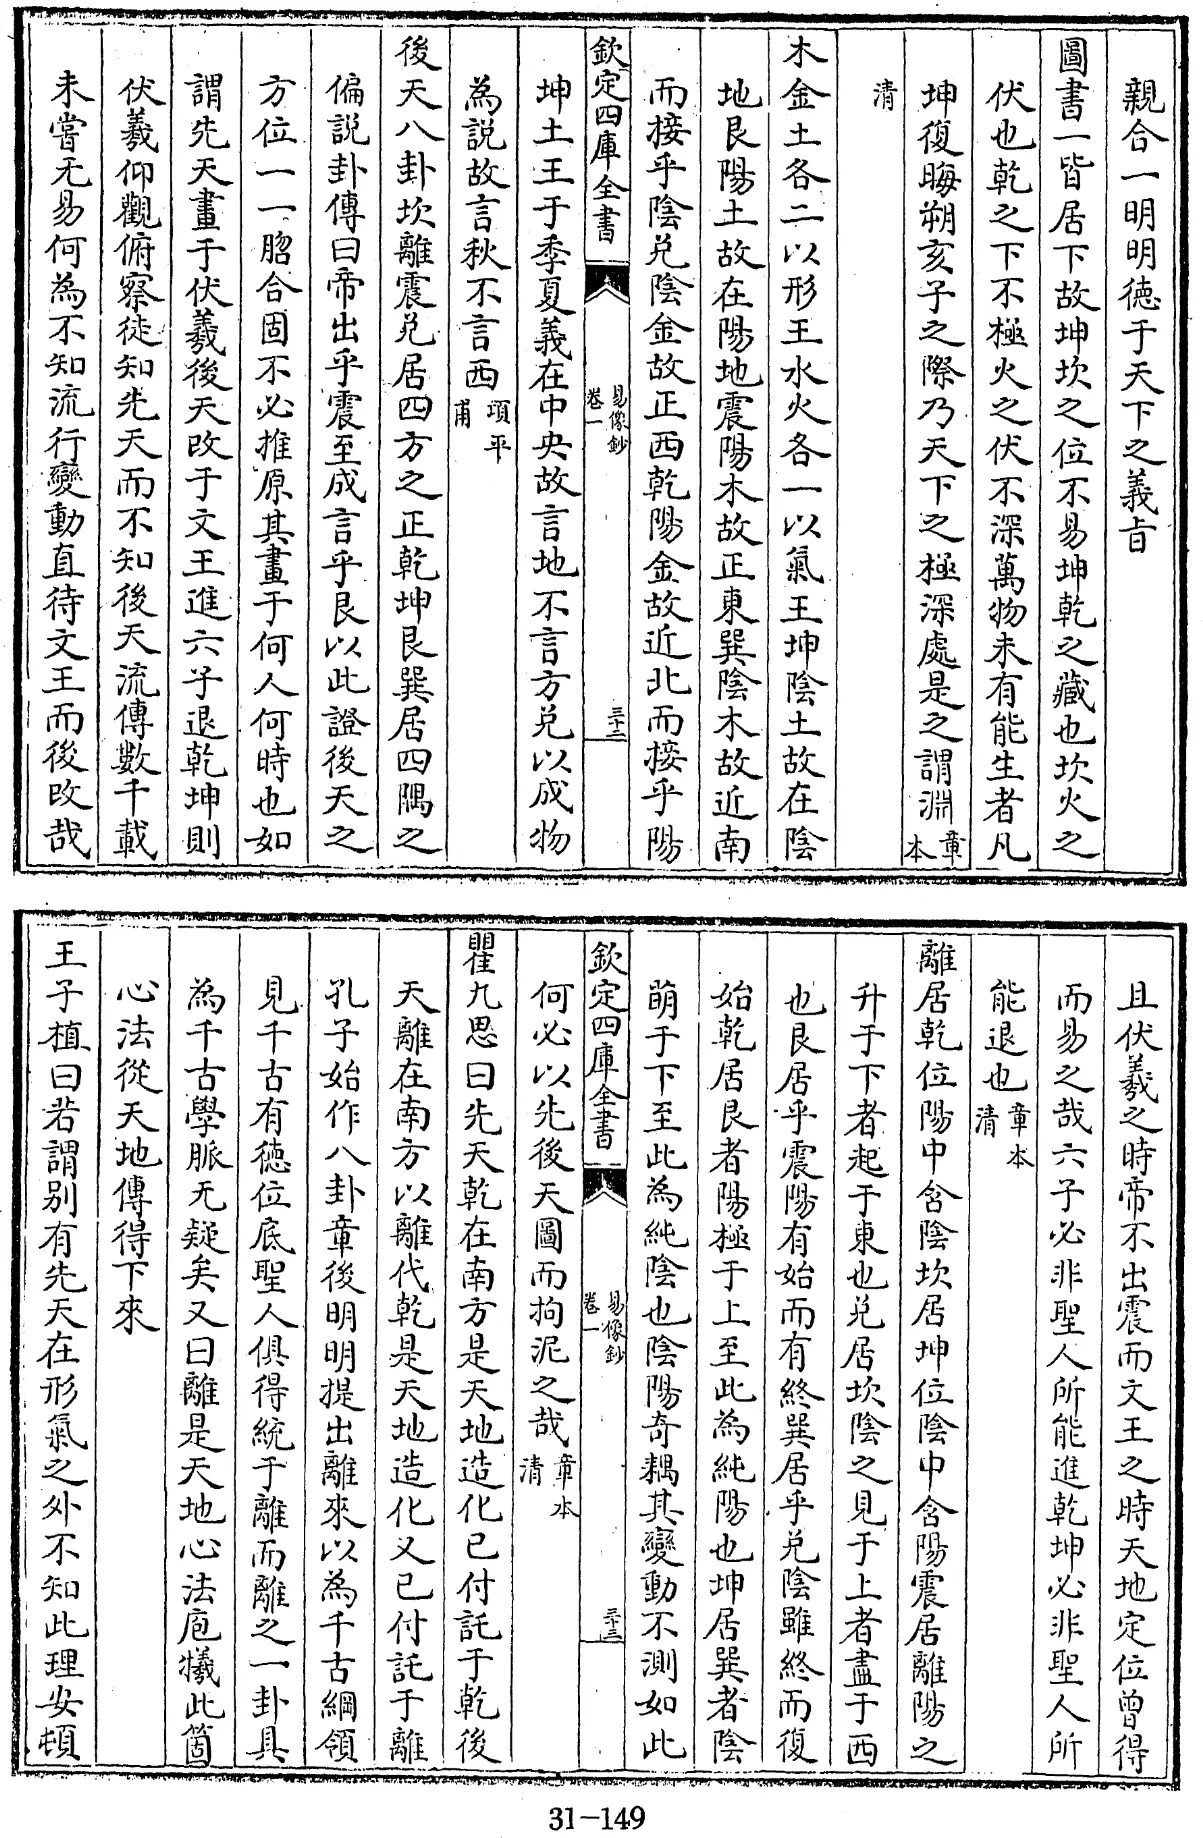 親合一明明徳于天下之義㫖
圖書一皆居下故坤坎之位不易坤乾之藏也坎火之
伏也乾之下不極火之伏不深萬物未有能生者凡
坤復晦朔亥子之際乃天下之極深處是之謂淵章本
清
木金土各二以形王水火各一以氣王坤陰土故在陰
地艮陽土故在陽地震陽木故正東巽陰木故近南
而接乎陰兌陰金故正西乾陽金故近北而接乎陽
欽定四庫全書 易像鈔 卷一 三十二
坤土王于季夏義在中央故言地不言方兌以成物
為説故言秋不言西項平甫
後天八卦坎離震兌居四方之正乾坤艮巽居四隅之
偏説卦傳曰帝出乎震至成言乎艮以此證後天之
方位一一脗合固不必推原其畫于何人何時也如
謂先天畫于伏羲後天改于文王進六子退乾坤則
伏羲仰觀俯察徒知先天而不知後天流傳數千載
未嘗无易何為不知流行變動直待文王而後改哉
且伏羲之時帝不出震而文王之時天地定位曾得
而易之哉六子必非聖人所能進乾坤必非聖人所
能退也章本清
離居乾位陽中含陰坎居坤位陰中含陽震居離陽之
升于下者起于東也兌居坎陰之見于上者盡于西
也艮居乎震陽有始而有終巽居乎兌陰雖終而復
始乾居艮者陽極于上至此為純陽也坤居巽者陰
萌于下至此為純陰也陰陽奇耦其變動不測如此
欽定四庫全書 易像鈔 卷一 三十三
何必以先後天圖而拘泥之哉章本清
瞿九思曰先天乾在南方是天地造化已付託于乾後
天離在南方以離代乾是天地造化又已付託于離
孔子始作八卦章後明明提出離來以為千古綱領
見千古有徳位底聖人俱得統于離而離之一卦具
為千古學脈无疑矣又曰離是天地心法庖犧此箇
心法從天地傳得下來
王子植曰若謂别有先天在形氣之外不知此理安頓
31-149